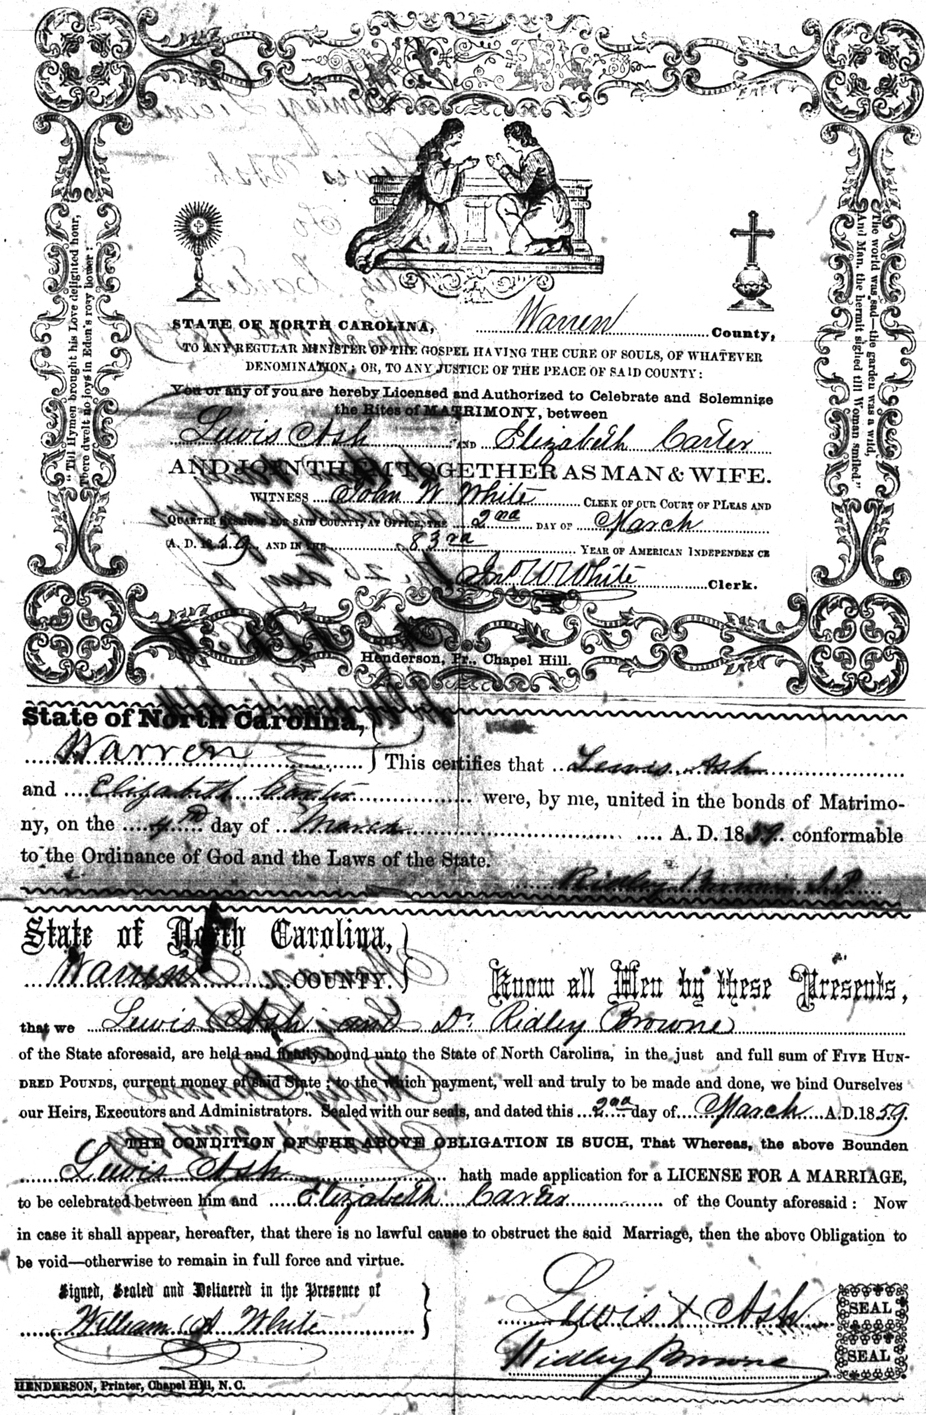 "Till Hymen brought his Love delighted hour,
There dwelt no joys in Eden's rosy bower:
The world was sad—the garden was a wild,
And Man, the hermit sighed till Woman smiled."
STATE OF NORTH CAROLINA, Warren County,
TO ANY REGULAR MINISTER OF THE GOSPEL HAVING THE CURE OF SOULS, OF WHATEVER
DENOMINATION; OR, TO ANY JUSTICE OF THE PEACE OF SAID COUNTY:
You or any of you are hereby Licensed and Authorized to Celebrate and Solemnize
the Rites of MATRIMONY, between
Lewis Ash AND Elizabeth Carter
AND JOIN THEM TOGETHER AS MAN & WIFE.
WITNESS John W White CLERK OF OUR COURT OF PLEAS AND
QUARTER SESSIONS FOR SAID COUNTY, AT OFFICE, THE 2nd DAY OF March
A. D. 1859 AND IN THE 83rd YEAR OF AMERICAN INDEPENDEN CE
Jno W White Clerk.
Henderson, Pr., Chapel Hill.
State of North Carolina,
Warren } This certifies that Lewis Ash
and Elizabeth Carter were, by me, united in the bonds of Matrimo-
ny, on the day of March A. D. 1859 conformable
to the Ordinance of God and the Laws of the State.
Ridley Browne J.P.
State of North Carolina,
Warren COUNTY. } Know all Men by these Presents,
that we Lewis Ash and Dr. Ridley Browne
of the State aforesaid, are held and firmly bound unto the State of North Carolina, in the just and full sum of FIVE HUN-
DRED POUNDS, current money of said State; to the which payment, well and truly to be made and done, we bind Ourselves
our Heirs, Executors and Administrators. Sealed with our seals, and dated this 2nd day of March A.D. 1859.
THE CONDITION OF THE ABOVE OBLIGATION IS SUCH, That Whereas, the above Bounden
Lewis Ash hath made application for a LICENSE FOR A MARRIAGE,
to be celebrated between him and Elizabeth Carter of the County aforesaid: Now
in case it shall appear, hereafter, that there is no lawful cause to obstruct the said Marriage, then the above Obligation to
be void—otherwise to remain in full force and virtue.
Signed, Sealed and Delivered in the Presence of
William A White }
Lewis x Ash SEAL
Ridley Browne SEAL
HENDERSON, Printer, Chapel Hill, N. C.